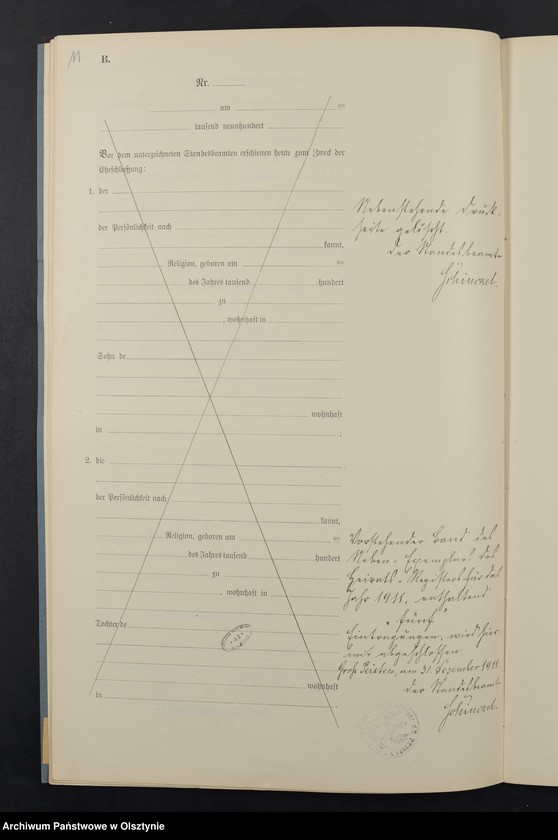 11
B.
Nr.
am ten
tausend neunhundert
Vor dem unterzeichneten Standesbeamten erschienen heute zum Zweck der
Eheschließung:
1. der
der Persönlichkeit nach
kannt,
Religion, geboren am ten
des Jahres tausend hundert
zu
, wohnhaft in
Sohn de
wohnhaft
in .
2. die
der Persönlichkeit nach
kannt,
Religion, geboren am ten
des Jahres tausend hundert
zu
, wohnhaft in
Tochter de
wohnhaft
in .
Nebenstehende Druck-
seite gelöscht.
Der Standesbeamte
Vorstehender Band des
Neben-Exemplars des
Heirats-Registers für das
Jahr 1911, enthaltend
"fünf"
Eintragungen, wird hier-
mit abgeschlossen.
Groß Peisten, am 31. Dezember 1911.
Der Standesbeamte
Archiwum Państwowe w Olsztynie